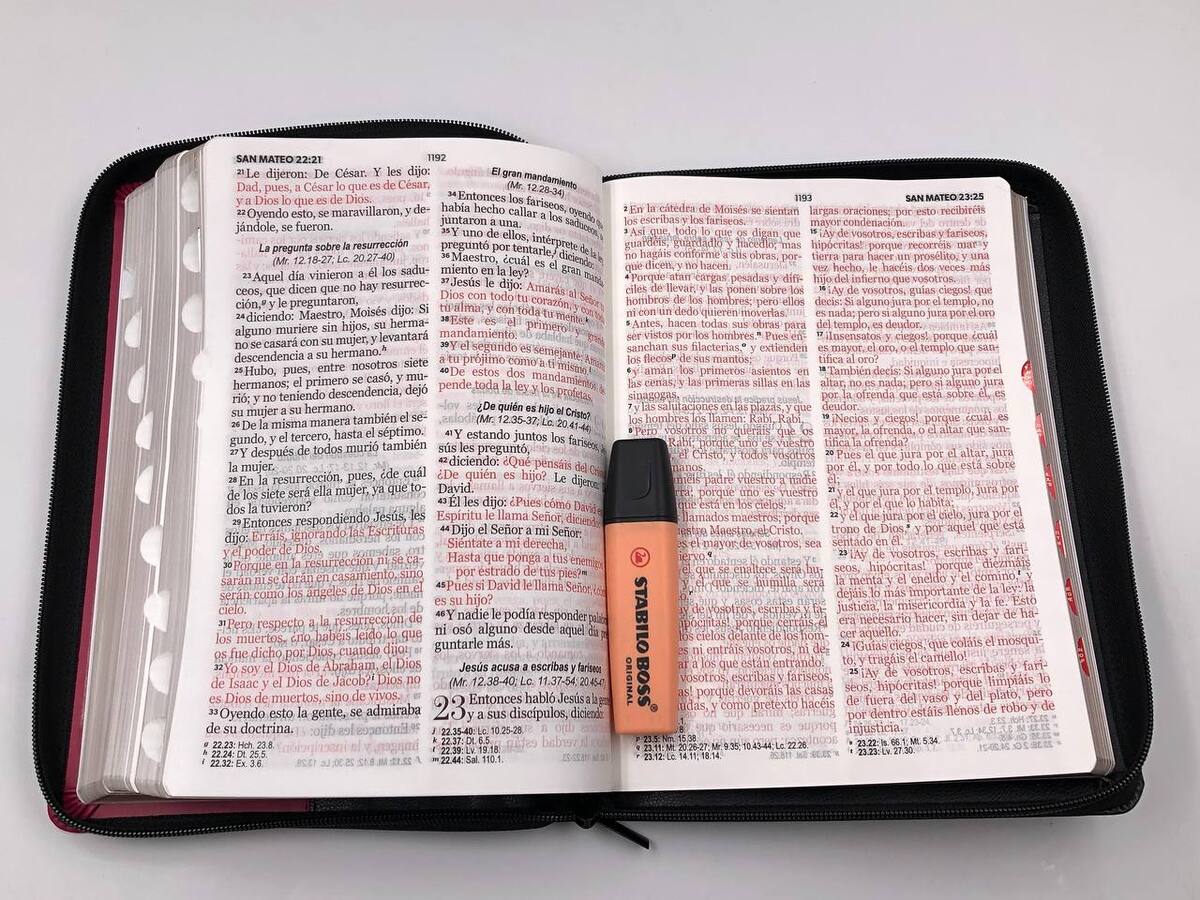 SAN MATEO 22:21
1192
21 Le dijeron: De César. Y les dijo:
Dad, pues, a César lo que es de César,
y a Dios lo que es de Dios.
22 Oyendo esto, se maravillaron, y de-
jándole, se fueron.
La pregunta sobre la resurrección
(Mr. 12.18-27; Lc. 20.27-40)
23 Aquel día vinieron a él los sadu-
ceos, que dicen que no hay resurrec-
ción,g y le preguntaron,
24 diciendo: Maestro, Moisés dijo: Si
alguno muriere sin hijos, su herma-
no se casará con su mujer, y levantará
descendencia a su hermano.h
25 Hubo, pues, entre nosotros siete
hermanos; el primero se casó, y mu-
rió; y no teniendo descendencia, dejó
su mujer a su hermano.
26 De la misma manera también el se-
gundo, y el tercero, hasta el séptimo.
27 Y después de todos murió también
la mujer.
28 En la resurrección, pues, ¿de cuál
de los siete será ella mujer, ya que to-
dos la tuvieron?
29 Entonces respondiendo Jesús, les
dijo: Erráis, ignorando las Escrituras
y el poder de Dios.
30 Porque en la resurrección ni se ca-
sarán ni se darán en casamiento, sino
serán como los ángeles de Dios en el
cielo.
31 Pero respecto a la resurrección de
los muertos, ¿no habéis leído lo que
os fue dicho por Dios, cuando dijo:
32 Yo soy el Dios de Abraham, el Dios
de Isaac y el Dios de Jacob?i Dios no
es Dios de muertos, sino de vivos.
33 Oyendo esto la gente, se admiraba
de su doctrina.
g 22.23: Hch. 23.8.
h 22.24: Dt. 25.5.
i 22.32: Ex. 3.6.
El gran mandamiento
(Mr. 12.28-34)
34 Entonces los fariseos, oyendo que
había hecho callar a los saduceos,
juntaron a una.
35 Y uno de ellos, intérprete de la ley,
preguntó por tentarle, diciendo:
36 Maestro, ¿cuál es el gran manda-
miento en la ley?
37 Jesús le dijo: Amarás al Señor
Dios con todo tu corazón, y con toda
tu alma, y con toda tu mente.k
38 Este es el primero y grande
mandamiento.
39 Y el segundo es semejante: Amarás
a tu prójimo como a ti mismo.l
40 De estos dos mandamientos de-
pende toda la ley y los profetas.
¿De quién es hijo el Cristo?
(Mr. 12.35-37; Lc. 20.41-44)
41 Y estando juntos los fariseos,
sús les preguntó,
42 diciendo: ¿Qué pensáis del Cristo?
¿De quién es hijo? Le dijeron:
David.
43 Él les dijo: ¿Pues cómo David en
Espíritu le llama Señor, diciendo:
44 Dijo el Señor a mi Señor:
Siéntate a mi derecha,
Hasta que ponga a tus enemigos
por estrado de tus pies?m
45 Pues si David le llama Señor, ¿cómo
es su hijo?
46 Y nadie le podía responder palabra;
ni osó alguno desde aquel día pre-
guntarle más.
Jesús acusa a escribas y fariseos
(Mr. 12.38-40; Lc. 11.37-54; 20.45-47)
23 Entonces habló Jesús a la gente
y a sus discípulos, diciendo:
j 22.35-40: Lc. 10.25-28.
k 22.37: Dt. 6.5.
l 22.39: Lv. 19.18.
m 22.44: Sal. 110.1.
1193
SAN MATEO 23:25
2 En la cátedra de Moisés se sientan
los escribas y los fariseos.
3 Así que, todo lo que os digan que
guardéis, guardadlo y hacedlo; mas
no hagáis conforme a sus obras, por-
que dicen, y no hacen.
4 Porque atan cargas pesadas y difí-
ciles de llevar, y las ponen sobre los
hombros de los hombres; pero ellos
ni con un dedo quieren moverlas.
5 Antes, hacen todas sus obras para
ser vistos por los hombres.n Pues en-
sanchan sus filacterias,o y extienden
los flecosp de sus mantos;
6 y aman los primeros asientos en
las cenas, y las primeras sillas en las
sinagogas,
7 y las salutaciones en las plazas, y que
los hombres los llamen: Rabí, Rabí.
8 Pero vosotros no queráis que os
Rabí; porque uno es vuestro
el Cristo, y todos vosotros
manos.
padre vuestro a nadie
porque uno es vuestro
que está en los cielos.
llamados maestros; porque
vuestro Maestro, el Cristo.
el mayor de vosotros, sea
siervo.q
que se enaltece será hu-
que se humilla será
¡ay de vosotros, escribas y fa-
hipócritas! porque cerráis el
los cielos delante de los hom-
ni entráis vosotros, ni de-
a los que están entrando.
de vosotros, escribas y fariseos,
hipócritas! porque devoráis las casas
viudas, y como pretexto hacéis
1.
p 23.5: Nm. 15.38.
q 23.11: Mt. 20.26-27; Mr. 9.35; 10.43-44; Lc. 22.26.
r 23.12: Lc. 14.11; 18.14.
largas oraciones; por esto recibiréis
mayor condenación.
15 ¡Ay de vosotros, escribas y fariseos,
hipócritas! porque recorréis mar y
tierra para hacer un prosélito, y una
vez hecho, le hacéis dos veces más
hijo del infierno que vosotros.
16 ¡Ay de vosotros, guías ciegos! que
decís: Si alguno jura por el templo, no
es nada; pero si alguno jura por el oro
del templo, es deudor.
17 ¡Insensatos y ciegos! porque ¿cuál
es mayor, el oro, o el templo que san-
tifica al oro?
18 También decís: Si alguno jura por el
altar, no es nada; pero si alguno jura
por la ofrenda que está sobre él, es
deudor.
19 ¡Necios y ciegos! porque ¿cuál es
mayor, la ofrenda, o el altar que san-
tifica la ofrenda?
20 Pues el que jura por el altar, jura
por él, y por todo lo que está sobre
él;
21 y el que jura por el templo, jura por
él, y por el que lo habita;
22 y el que jura por el cielo, jura por el
trono de Dios,s y por aquel que está
sentado en él.
23 ¡Ay de vosotros, escribas y fari-
seos, hipócritas! porque diezmáis
la menta y el eneldo y el comino,t y
dejáis lo más importante de la ley: la
justicia, la misericordia y la fe. Esto
era necesario hacer, sin dejar de ha-
cer aquello.
24 ¡Guías ciegos, que coláis el mosqui-
to, y tragáis el camello!
25 ¡Ay de vosotros, escribas y fari-
seos, hipócritas! porque limpiáis lo
de fuera del vaso y del plato, pero
por dentro estáis llenos de robo y de
injusticia.
s 23.22: Is. 66.1; Mt. 5.34.
t 23.23: Lv. 27.30.
STABILO BOSS®
ORIGINAL